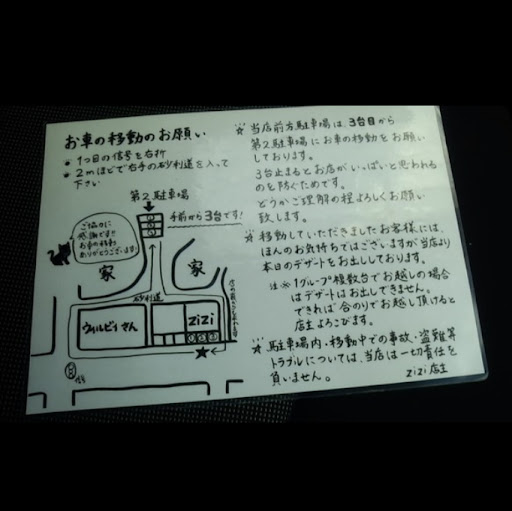 お車の移動のお願い
● 1つ目の信号を右折
● 2mほどで右手の砂利道を入って
下さい
第2駐車場
手前から3台です!
ご協力に
感謝です!!
お車の移動
ありがとうございます!
家
家
砂利道
ウィルビィさん
zizi
信号
☆ 当店前方駐車場は、3台目から
第2駐車場にお車の移動をお願い
しております。
3台止まるとお店がいっぱいと思われる
のを防ぐためです。
どうかご理解の程よろしくお願い
致します。
☆ 移動していただきましたお客様には、
ほんのお気持ちではございますが当店より
本日のデザートをお出ししております。
注※ 1グループ複数台でお越しの場合
はデザートはお出しできません。
できれば合のりでお越し頂けると
店主よろこびます。
☆ 駐車場内・移動中での事故・盗難等
トラブルについては、当店は一切責任を
負いません。
zizi店主